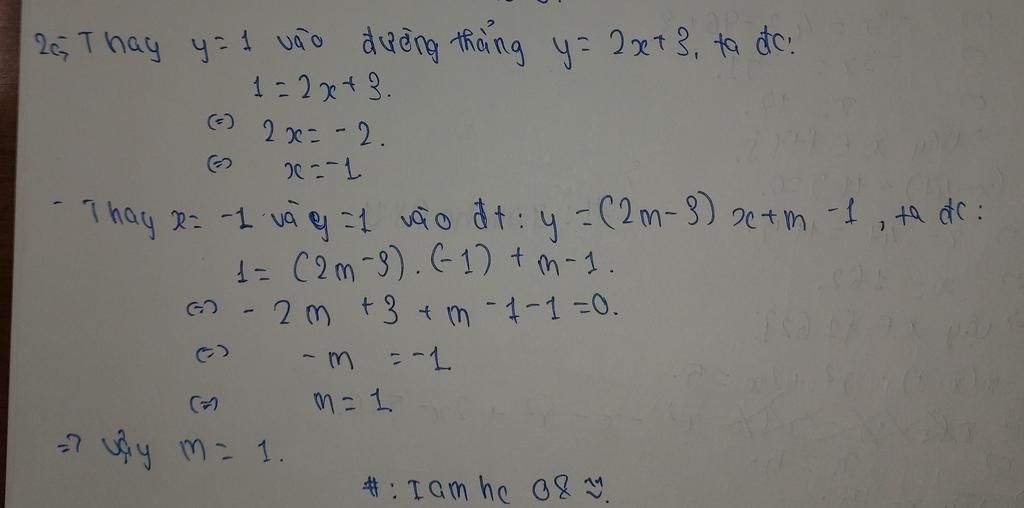 2c; Thay y = 1 vào đường thẳng y = 2x + 3, ta đc:
1 = 2x + 3.
(=) 2x = -2.
(=) x = -1
- Thay x = -1 và y = 1 vào đt: y = (2m - 3) x + m - 1, ta đc:
1 = (2m - 3) . (-1) + m - 1.
(=) - 2m + 3 + m - 1 - 1 = 0.
(=) - m = -1
(=) m = 1.
=> Vậy m = 1.
#: I am hc 08